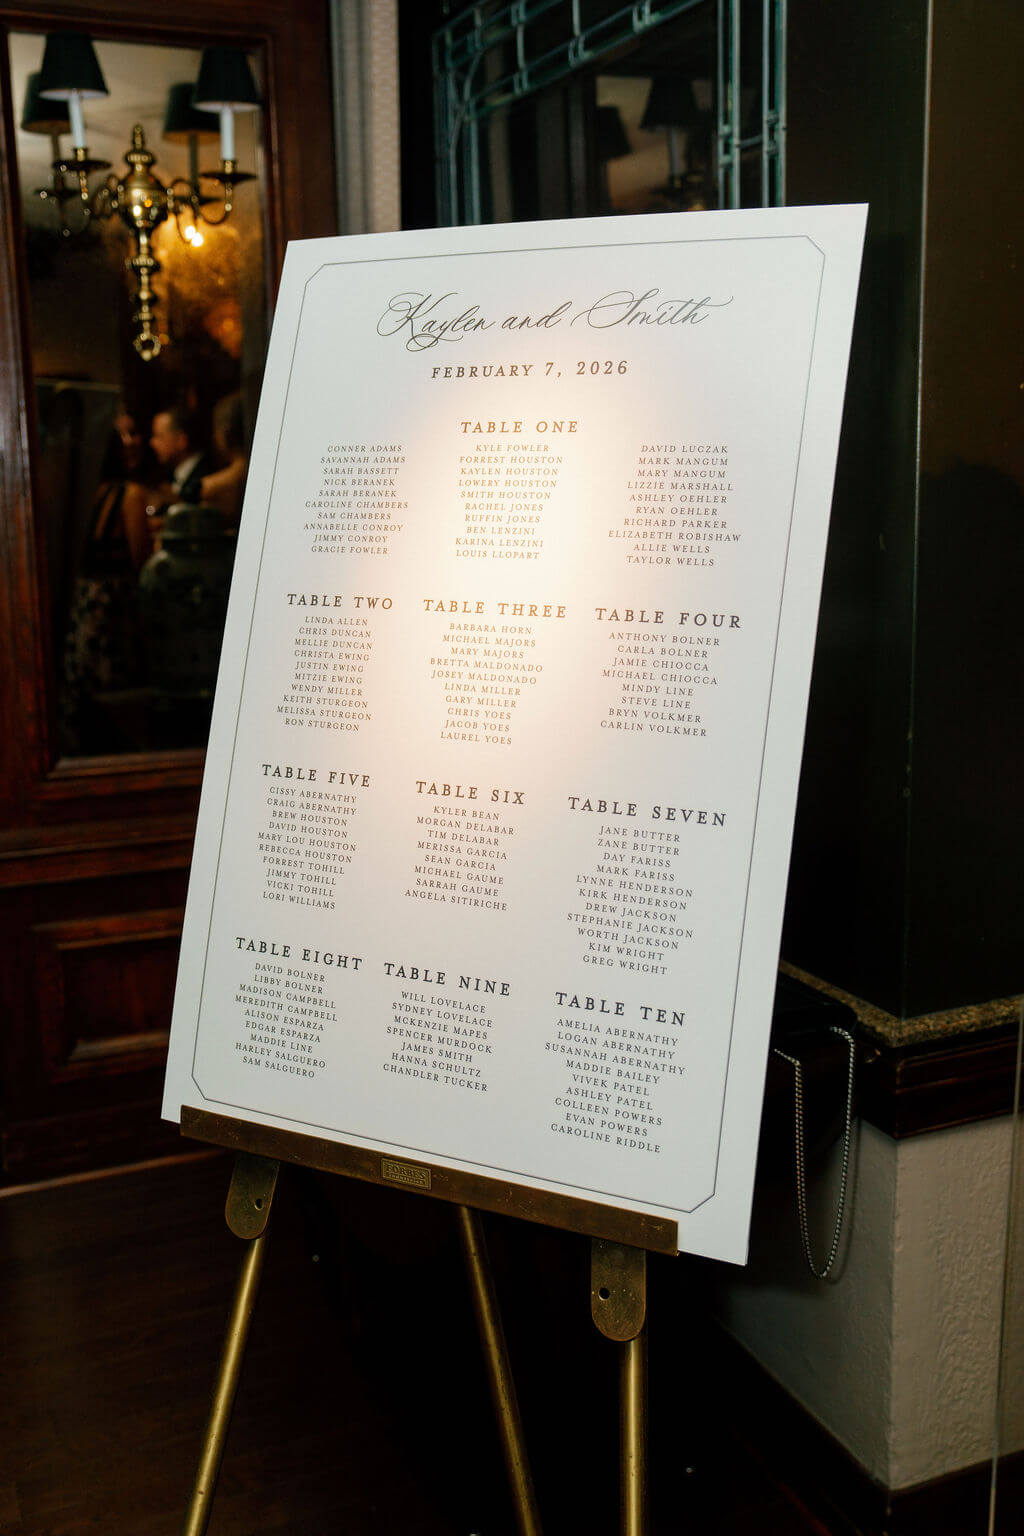 Kaylen and Smith
FEBRUARY 7, 2026
TABLE ONE
CONNER ADAMS
SAVANNAH ADAMS
SARAH BASSETT
NICK BERANEK
SARAH BERANEK
CAROLINE CHAMBERS
SAM CHAMBERS
ANNABELLE CONROY
JIMMY CONROY
GRACIE FOWLER
KYLE FOWLER
FORREST HOUSTON
KAYLEN HOUSTON
LOWERY HOUSTON
SMITH HOUSTON
RACHEL JONES
RUFFIN JONES
BEN LENZINI
KARINA LENZINI
LOUIS LLOPART
DAVID LUCZAK
MARK MANGUM
MARY MANGUM
LIZZIE MARSHALL
ASHLEY OEHLER
RYAN OEHLER
RICHARD PARKER
ELIZABETH ROBISHAW
ALLIE WELLS
TAYLOR WELLS
TABLE TWO
LINDA ALLEN
CHRIS DUNCAN
MELLIE DUNCAN
CHRISTA EWING
JUSTIN EWING
MITZIE EWING
WENDY MILLER
KEITH STURGEON
MELISSA STURGEON
RON STURGEON
TABLE THREE
BARBARA HORN
MICHAEL MAJORS
MARY MAJORS
BRETTA MALDONADO
JOSEY MALDONADO
LINDA MILLER
GARY MILLER
CHRIS YOES
JACOB YOES
LAUREL YOES
TABLE FOUR
ANTHONY BOLNER
CARLA BOLNER
JAMIE CHIOCCA
MICHAEL CHIOCCA
MINDY LINE
STEVE LINE
BRYN VOLKMER
CARLIN VOLKMER
TABLE FIVE
CISSY ABERNATHY
CRAIG ABERNATHY
BREW HOUSTON
DAVID HOUSTON
MARY LOU HOUSTON
REBECCA HOUSTON
FORREST TOHILL
JIMMY TOHILL
VICKI TOHILL
LORI WILLIAMS
TABLE SIX
KYLER BEAN
MORGAN DELABAR
TIM DELABAR
MERISSA GARCIA
SEAN GARCIA
MICHAEL GAUME
SARRAH GAUME
ANGELA SITIRICHE
TABLE SEVEN
JANE BUTTER
ZANE BUTTER
DAY FARISS
MARK FARISS
LYNNE HENDERSON
KIRK HENDERSON
DREW JACKSON
STEPHANIE JACKSON
WORTH JACKSON
KIM WRIGHT
GREG WRIGHT
TABLE EIGHT
DAVID BOLNER
LIBBY BOLNER
MADISON CAMPBELL
MEREDITH CAMPBELL
ALISON ESPARZA
EDGAR ESPARZA
MADDIE LINE
HARLEY SALGUERO
SAM SALGUERO
TABLE NINE
WILL LOVELACE
SYDNEY LOVELACE
MCKENZIE MAPES
SPENCER MURDOCK
JAMES SMITH
HANNA SCHULTZ
CHANDLER TUCKER
TABLE TEN
AMELIA ABERNATHY
LOGAN ABERNATHY
SUSANNAH ABERNATHY
MADDIE BAILEY
VIVEK PATEL
ASHLEY PATEL
COLLEEN POWERS
EVAN POWERS
CAROLINE RIDDLE
FORBES